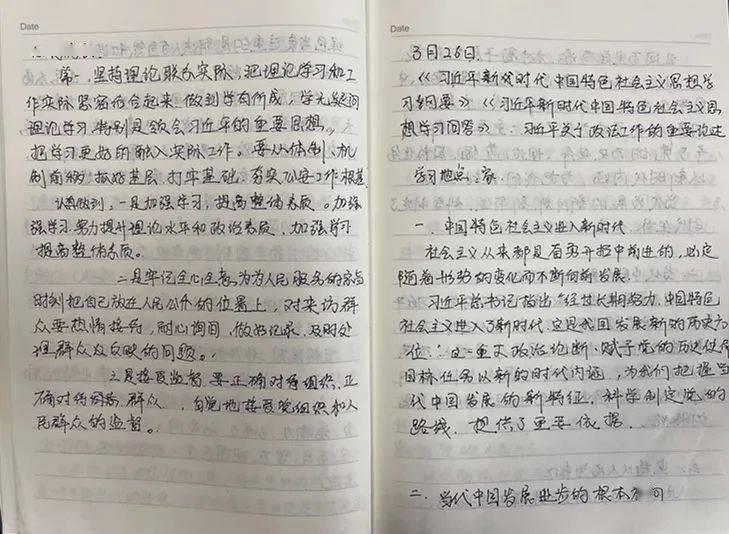 Date
第一、坚持理论联系实际,把理论学习和工
作实际紧密结合起来,做到学有所成,学无疑问
理论学习,特别是领会习近平的重要思想。
把学习更好的融入实际工作。要从体制、机
制前做抓好基层,打牢基础,夯实公安工作根基
认真做到,一是加强学习,提高整体素质。加强
强学习,努力提升理论水平和政治素质,加强学习
提高整体素质。
二是牢记全心全意为人民服务的宗旨
时刻把自己放在人民公仆的位置上,对来访群
众要热情接待,耐心询问,做好记录,及时处
理群众反映的问题。
三是接受监督,要正确对待组织,正
确对待同志 群众 ,自觉地接受党组织和人
民群众的监督。
Date
3月26日.
《《习近平新时代中国特色社会主义思想学
习纲要》《习近平新时代中国特色社会主义思
想学习问答》、习近平关于政法工作的重要论述
学习地点:家.
一、中国特色社会主义进入新时代
社会主义从来都是在开拓中前进的,必定
随着形势的变化而不断向前发展.
习近平总书记指出"经过长期努力,中国特色
社会主义进入了新时代,这是我国发展新的历史方
位".这一重大政治论断,赋予党的历史使命
目标任务以新的时代内涵,为我们把握当
代中国发展的新特征,科学制定党的
路线、提供了重要依据.
二、当代中国发展进步的根本 方向